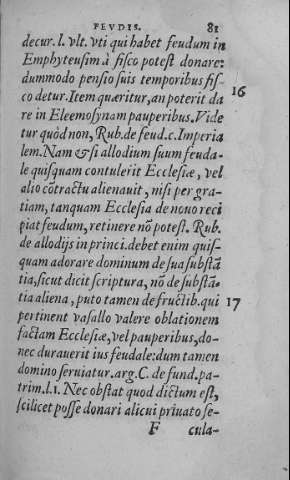 FEVDIS. 81
decur. l. vlt. vti qui habet feudum in
Emphyteusim à fisco potest donare:
dummodo pensio suis temporibus fis-
co detur. Item quæritur, an poterit da 16
re in Eleemosynam pauperibus. Vide
tur quòd non, Rub. de feud. c. Imperia
lem. Nam & si allodium suum feuda-
le quisquam contulerit Ecclesiæ, vel
alio cõtractu alienauit, nisi per gra-
tiam, tanquam Ecclesia de nouo reci
piat feudum, retinere nõ potest. Rub.
de allodijs in princi. debet enim quis-
quam adorare dominum de sua substã
tia, sicut dicit scriptura, nõ de substã-
tia aliena, puto tamen de fructib. qui 17
pertinent vasallo valere oblationem
factam Ecclesiæ, vel pauperibus, do-
nec durauerit ius feudale: dum tamen
domino seruiatur. arg. C. de fund. pa-
trim. l. 1. Nec obstat quod dictum est,
scilicet posse donari alicui priuato se-
F cula-